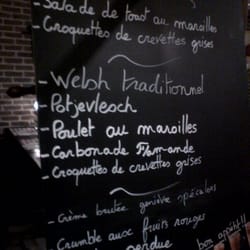 - Salade de toast au maroilles
- Croquettes de crevettes grises
- Welsh traditionnel
- Potjevleesch
- Poulet au maroilles
- Carbonade Flamande
- Croquettes de crevettes grises
- Crème brulée genièvre spéculoos
- Crumble aux fruits rouges
perdue
bon appétit!!